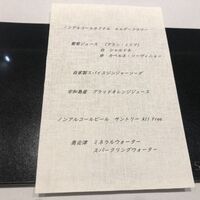 ノンアルコールカクテル エルダーフラワー
葡萄ジュース (アラン・ミリア)
白 シャルドネ
赤 カベルネ・ソーヴィニョン
自家製スパイスジンジャーソーダ
宇和島産 ブラッドオレンジジュース
ノンアルコールビール サントリー All Free
奥会津 ミネラルウォーター
スパークリングウォーター